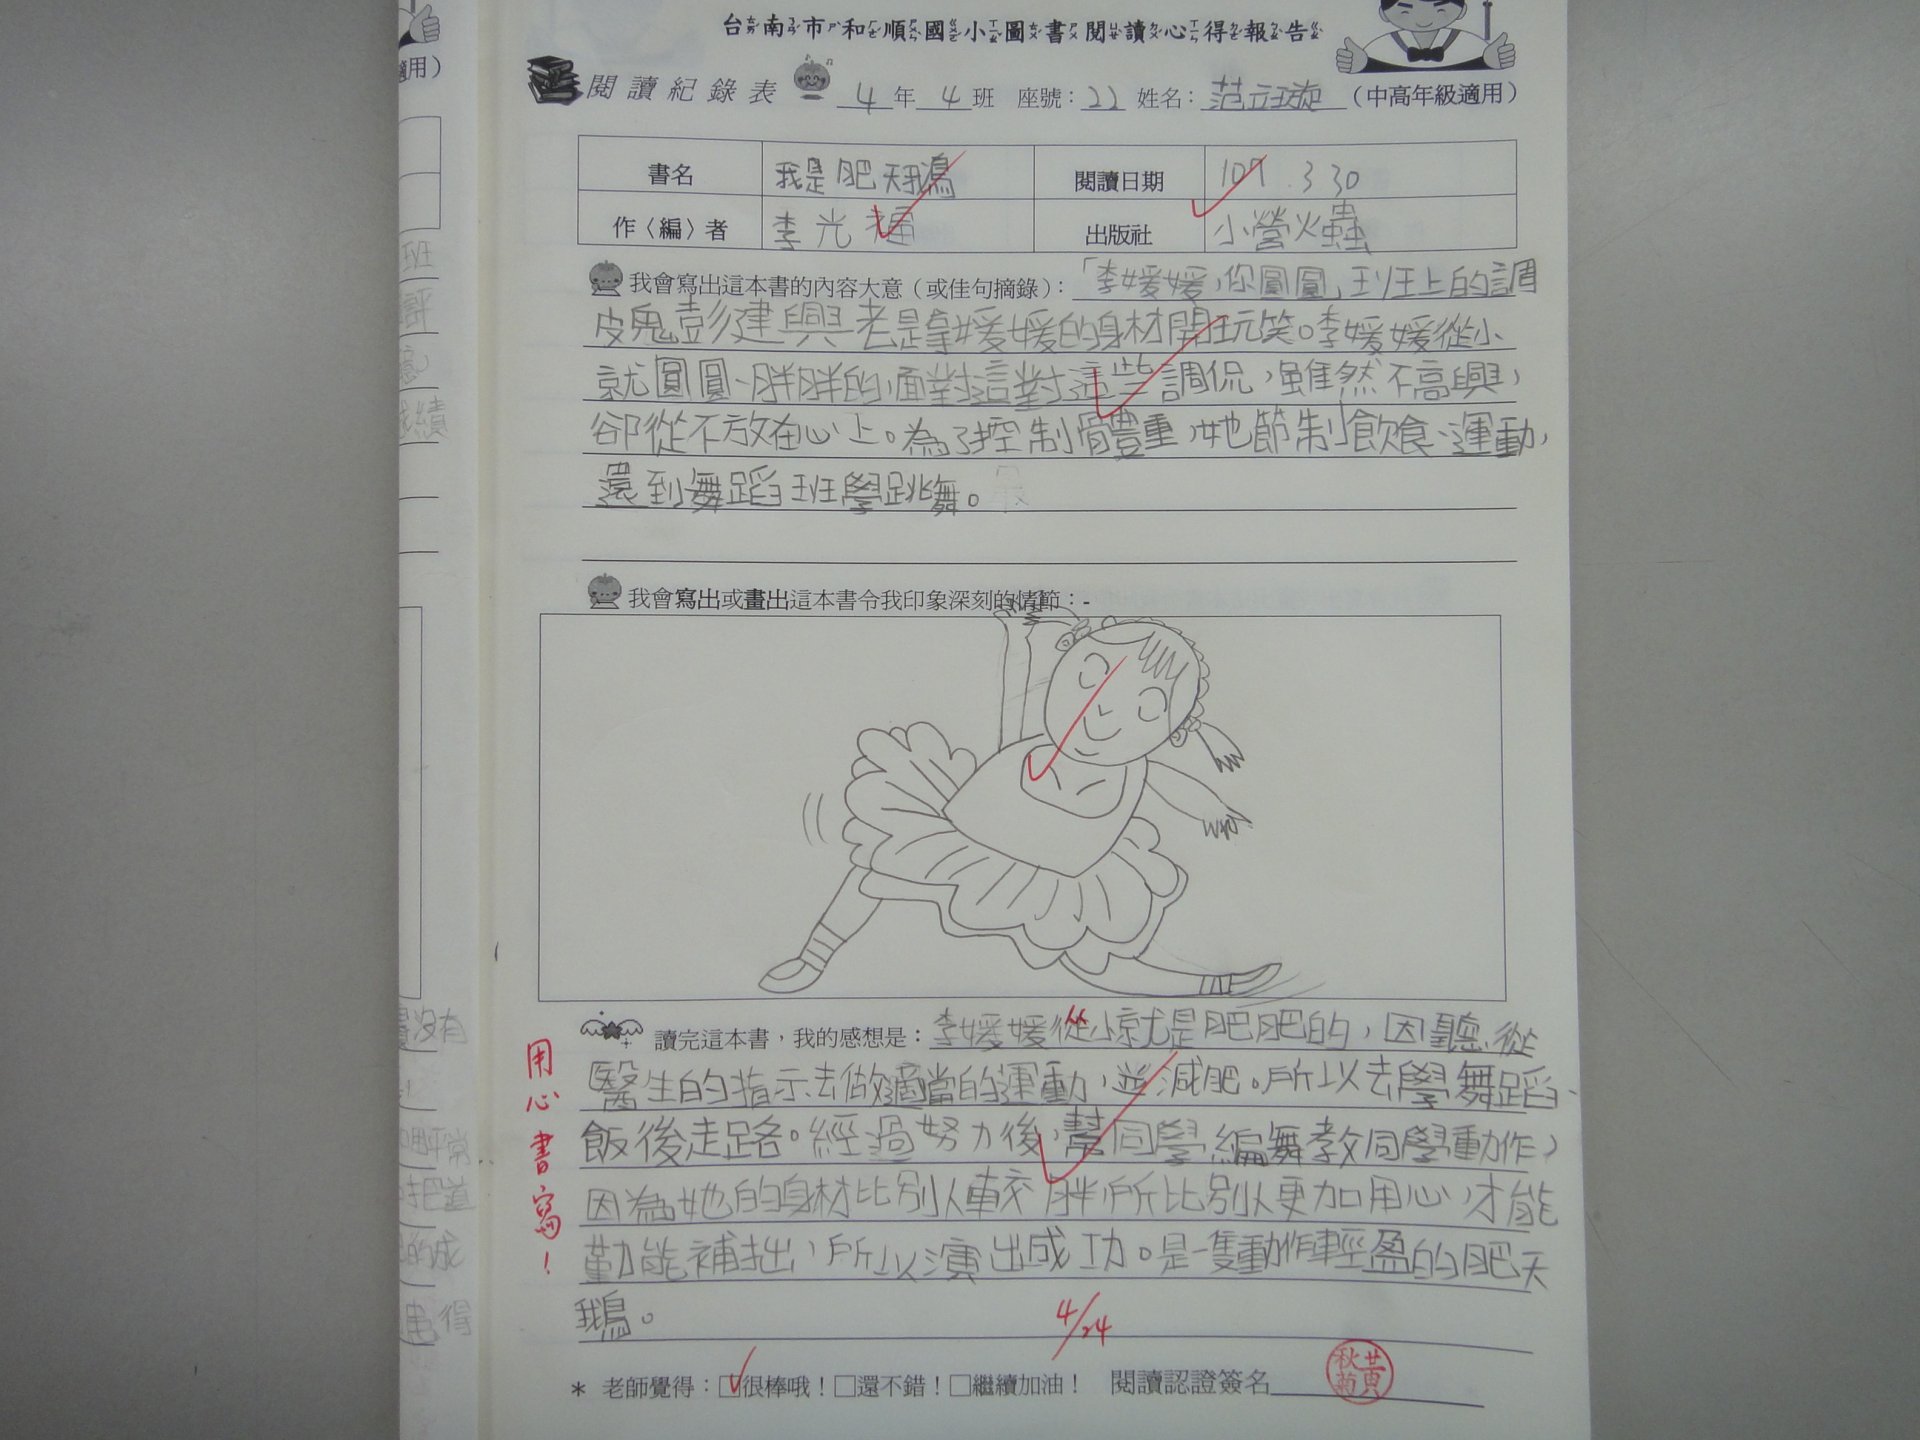 台南市和順國小圖書閱讀心得報告
閱讀紀錄表 4年4班 座號：22 姓名：范玨璇（中高年級適用）
書名 我是肥天鵝 閱讀日期 107.3 30
作〈編〉者 李光福 出版社 小螢火蟲
我會寫出這本書的內容大意（或佳句摘錄）：「李媛媛，你圓圓」班上的調
皮鬼彭建興老是拿媛媛的身材開玩笑。李媛媛從小
就圓圓、胖胖的，面對這對這些調侃，雖然不高興，
卻從不放在心上。為了控制體重，她節制飲食、運動，
還到舞蹈班學跳舞。
我會寫出或畫出這本書令我印象深刻的情節：-
讀完這本書，我的感想是：李媛媛從小就是肥肥的，因聽從
醫生的指示去做適當的運動，並減肥。所以去學舞蹈、
飯後走路。經過努力後，幫同學編舞教同學動作，
因為她的身材比別人較胖，所比別人更加用心，才能
勤能補拙，所以演出成功。是一隻動作輕盈的肥天
鵝。
用心書寫！
4/24
* 老師覺得：□很棒哦！□還不錯！□繼續加油！ 閱讀認證簽名
黃秋菊